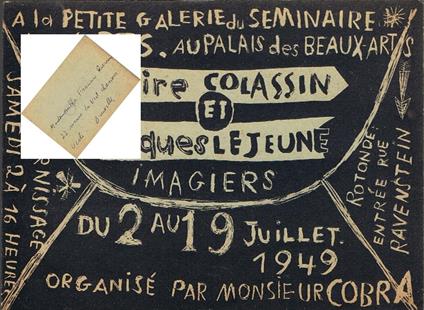 A la PETITE GALERIE du SEMINAIRE
S. AU PALAIS des BEAUX-ARTS
ire COLASSIN
ET
ques LEJEUNE
IMAGIERS
DU 2 AU 19 JUILLET.
1949
ORGANISÉ PAR MONSIEUR COBRA
SAMEDI 2 À 16 HEURES
RNISSAGE
ROTONDE:
ENTRÉE RUE
RAVENSTEIN
Mademoiselle